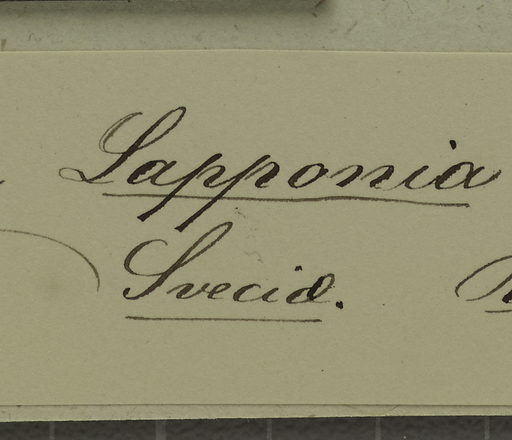 Lapponia
Sveciæ.